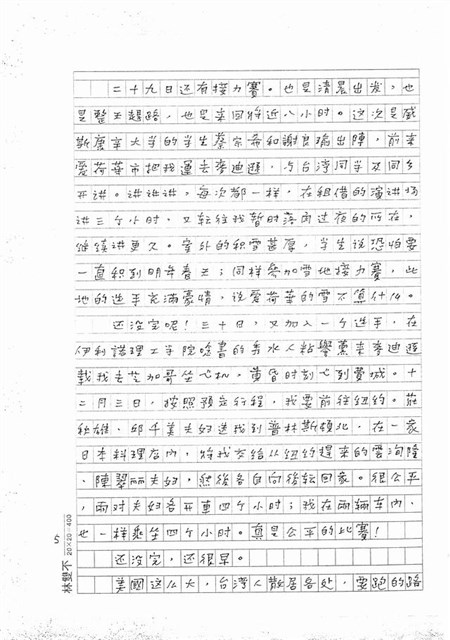 二十九日还有接力賽。也是清晨出发，也
是整天趕路，也是来回将近八小时。这次是威
斯康辛大学的学生蔡宗希和謝良瑜出陣，前来
愛荷華市把我運去麥迪遜，与台湾同学及同乡
开讲。讲讲讲，每次都一样，在租借的演讲场
讲三个小时，又転往我暫时落脚过夜的所在，
继续讲更久。窗外的积雪甚厚，学生说恐怕要
一直积到明年春天；同样参加雪地接力賽，此
地的选手充滿豪情，说愛荷華的雪不算什么。
还没完呢！三十日，又加入一个选手，在
伊利諾理工学院唸書的 水人 麥迪遜
載我去芝加哥坐飞机，黄昏时刻飞到費城。十
二月三日，按照預定行程，我要前往紐約。莊
秋雄、邱千美夫妇送我到普林斯頓北，在一家
日本料理店內，将我交给从紐約趕来的雷洵隆
、陳翠丽夫妇，然後各自向後転回家。很公平
，兩对夫妇各开車四个小时；我在兩辆车內，
也一样乘坐四个小时。真是公平的比賽！
还没完，还很早。
美國这么大，台湾人散居各处，要跑的路
5
20×20=400
林雙不